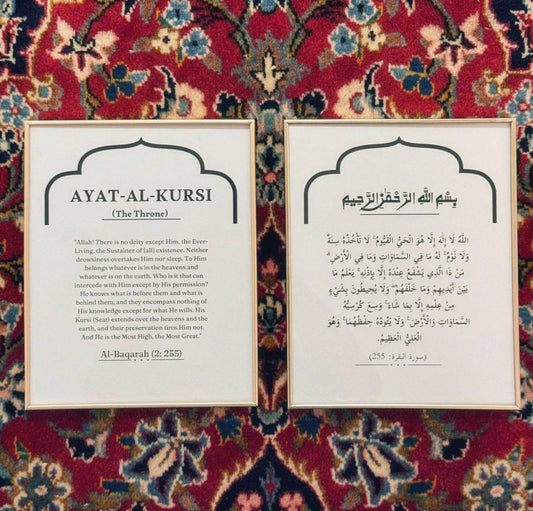 AYAT-AL-KURSI
(The Throne)
"Allah! There is no deity except Him, the Ever-
Living, the Sustainer of [all] existence. Neither
drowsiness overtakes Him nor sleep. To Him
belongs whatever is in the heavens and
whatever is on the earth. Who is it that can
intercede with Him except by His permission?
He knows what is before them and what is
behind them, and they encompass nothing of
His knowledge except for what He wills. His
Kursi (Seat) extends over the heavens and the
earth, and their preservation tires Him not.
And He is the Most High, the Most Great."
Al-Baqarah (2: 255)
بِسْمِ اللَّهِ الرَّحْمَٰنِ الرَّحِيمِ
اللَّهُ لَا إِلَٰهَ إِلَّا هُوَ الْحَيُّ الْقَيُّومُ ۚ لَا تَأْخُذُهُ سِنَةٌ
وَلَا نَوْمٌ ۚ لَهُ مَا فِي السَّمَاوَاتِ وَمَا فِي الْأَرْضِ ۗ
مَنْ ذَا الَّذِي يَشْفَعُ عِنْدَهُ إِلَّا بِإِذْنِهِ ۚ يَعْلَمُ مَا
بَيْنَ أَيْدِيهِمْ وَمَا خَلْفَهُمْ ۖ وَلَا يُحِيطُونَ بِشَيْءٍ
مِنْ عِلْمِهِ إِلَّا بِمَا شَاءَ ۚ وَسِعَ كُرْسِيُّهُ
السَّمَاوَاتِ وَالْأَرْضَ ۖ وَلَا يَئُودُهُ حِفْظُهُمَا ۚ وَهُوَ
الْعَلِيُّ الْعَظِيمُ.
(سورة البقرة: 255)